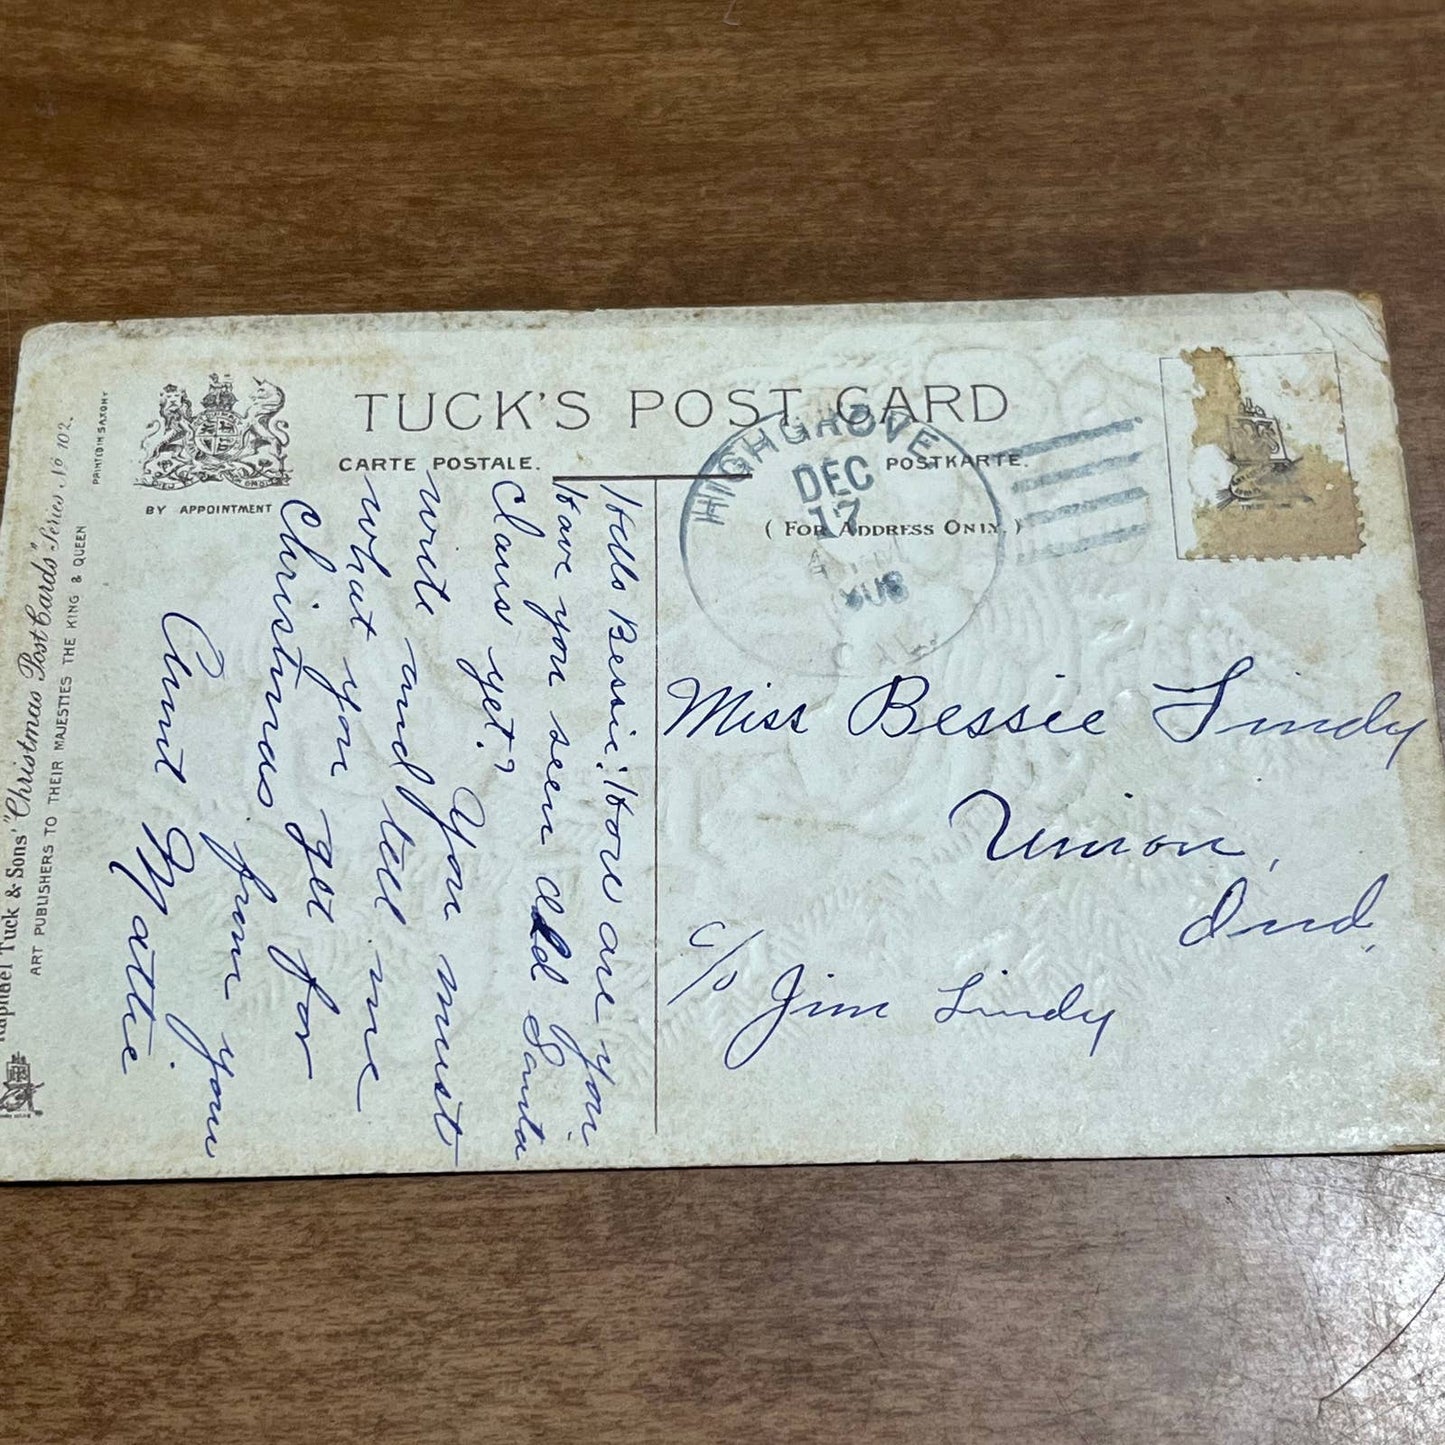 TUCK'S POST CARD
CARTE POSTALE.
POSTKARTE.
( FOR ADDRESS ONLY. )
BY APPOINTMENT
PRINTED IN SAXONY
Raphael Tuck & Sons' "Christmas Post Cards" Series No 102.
ART PUBLISHERS TO THEIR MAJESTIES THE KING & QUEEN
HIGHGROVE
DEC
17
CAL
Hello Bessie: How are you
Have you seen old Santa
Claus yet? You must
write and tell me
what you get for
Christmas from your
Aunt Mattie
Miss Bessie Lindy
Union,
Ind,
c/o Jim Lindy